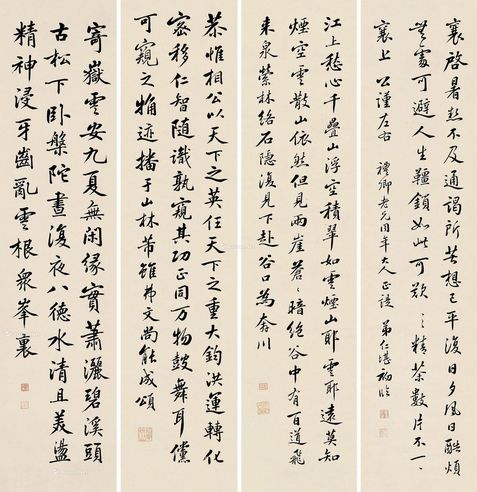 襄啓暑熱不及通謁所苦想已平復日夕風日酷煩
無處可避人生韁鎖如此可歎〻精茶數片不一〻
襄上 公謹左右 禮卿老兄同年大人正 弟仁堪
江上愁心千疊山浮空積翠如雲煙山耶雲耶遠莫知
煙空雲散山依然但見兩崖蒼〻暗絕谷中有百道飛
來泉縈林絡石隱復見下赴谷口為奔川
恭惟相公以天下之英任天下之重大鈞洪運轉化
密移仁智隨識孰窺其功正同万物鼓舞耳儻
可窺之迹播于山林芾雖弗文尚能成頌
寄嶽雲安九夏無閑緣實蕭灑碧溪頭
古松下臥盤陀晝復夜八德水清且美盪
精神浸牙齒亂雲根衆峯裏